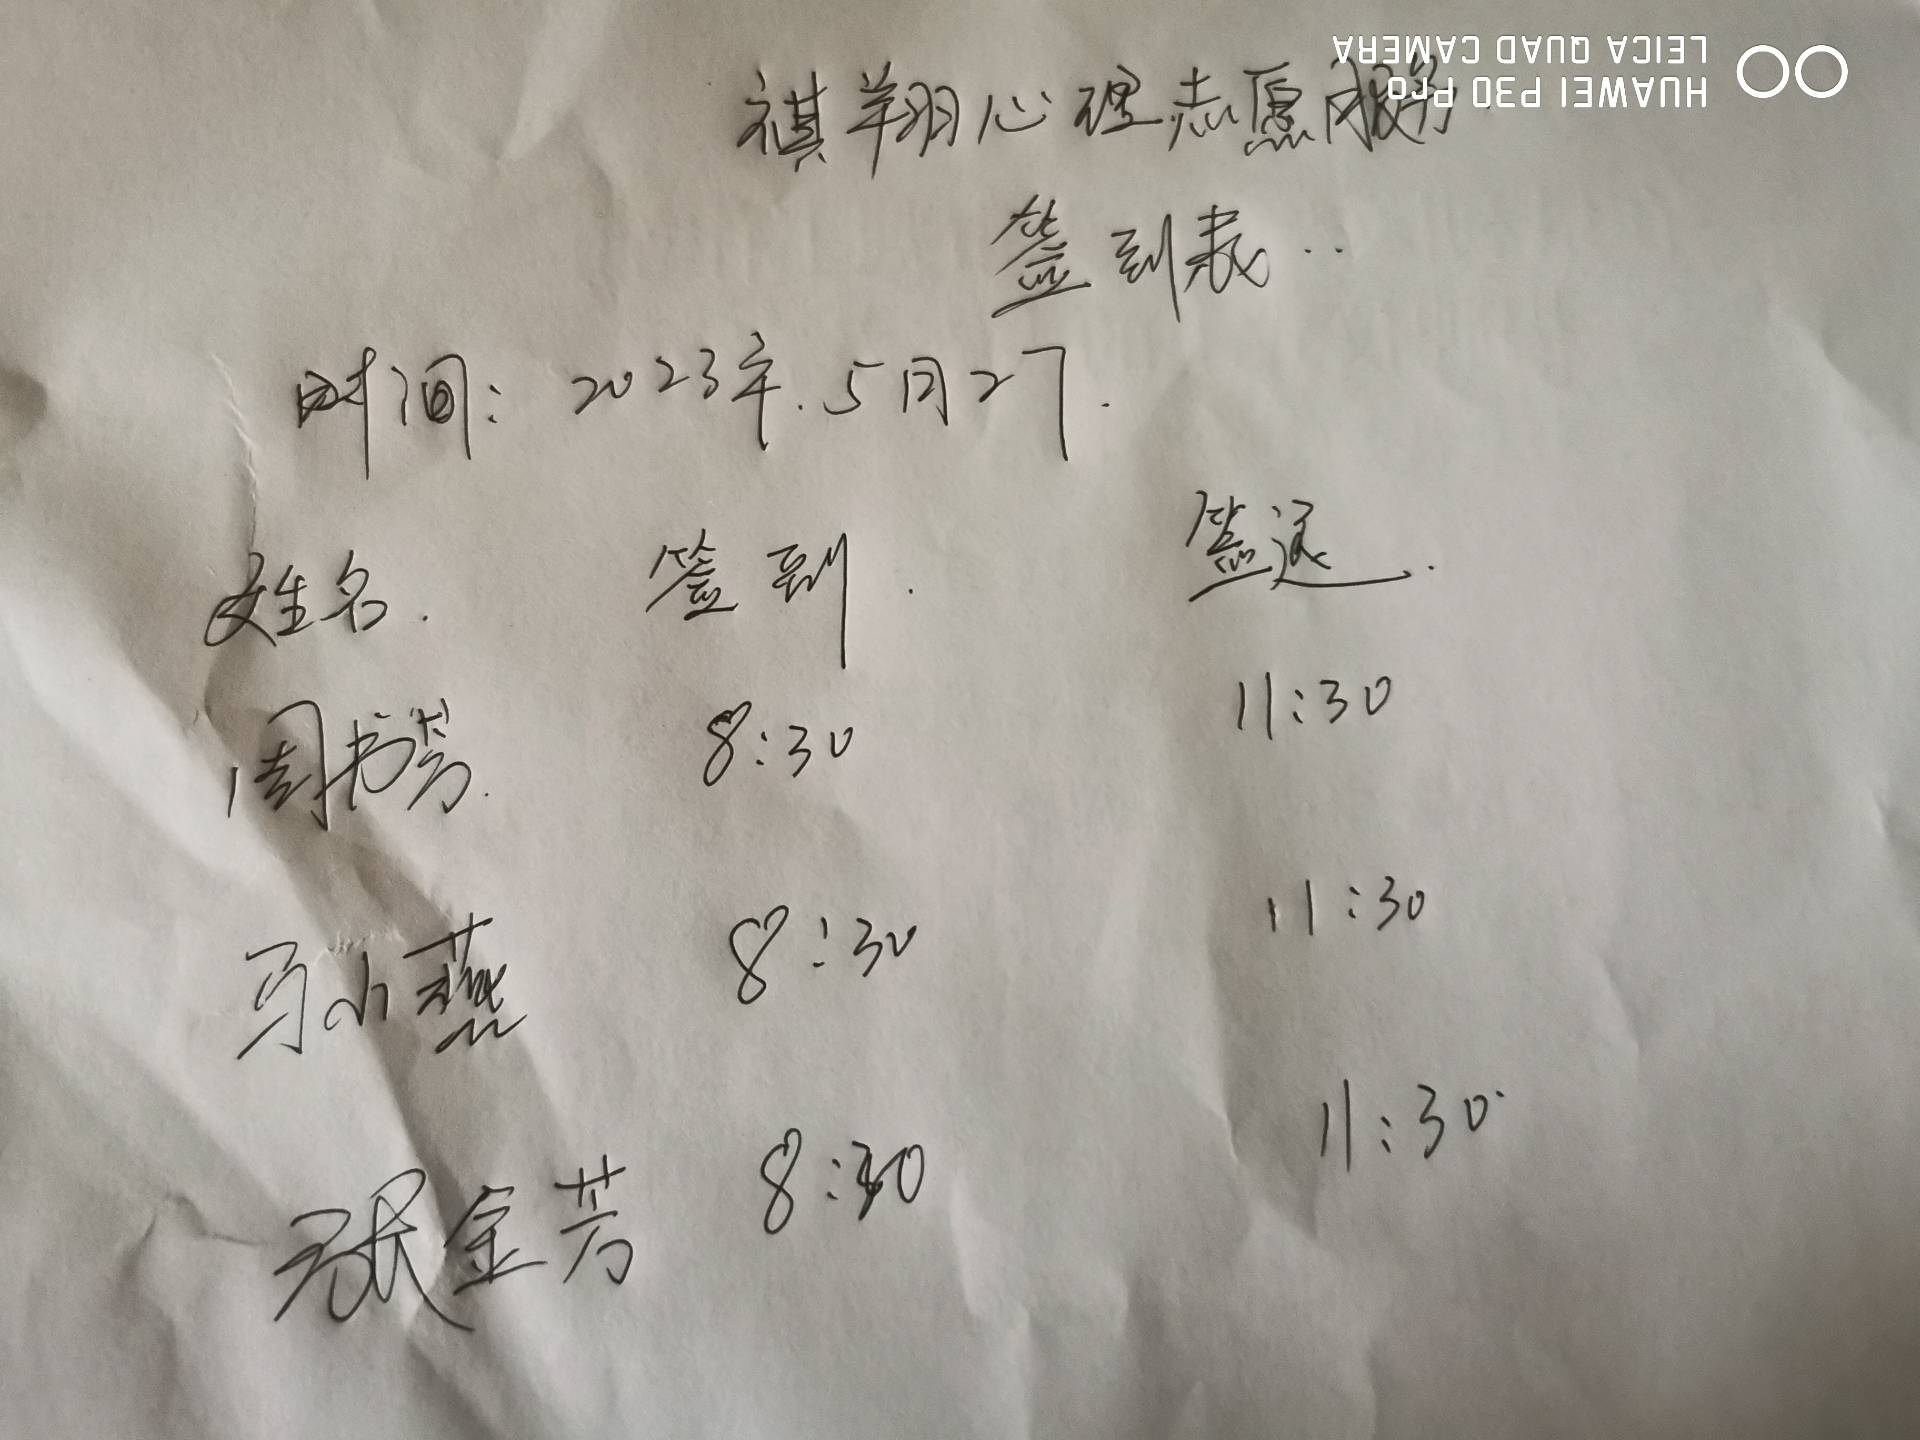 HUAWEI P30 Pro
LEICA QUAD CAMERA
祺翔心理志愿服务
签到表..
时间: 2023年.5月27.
姓名. 签到. 签退.
周书芳. 8:30 11:30
马小燕 8:30 11:30
张金芳 8:30 11:30.